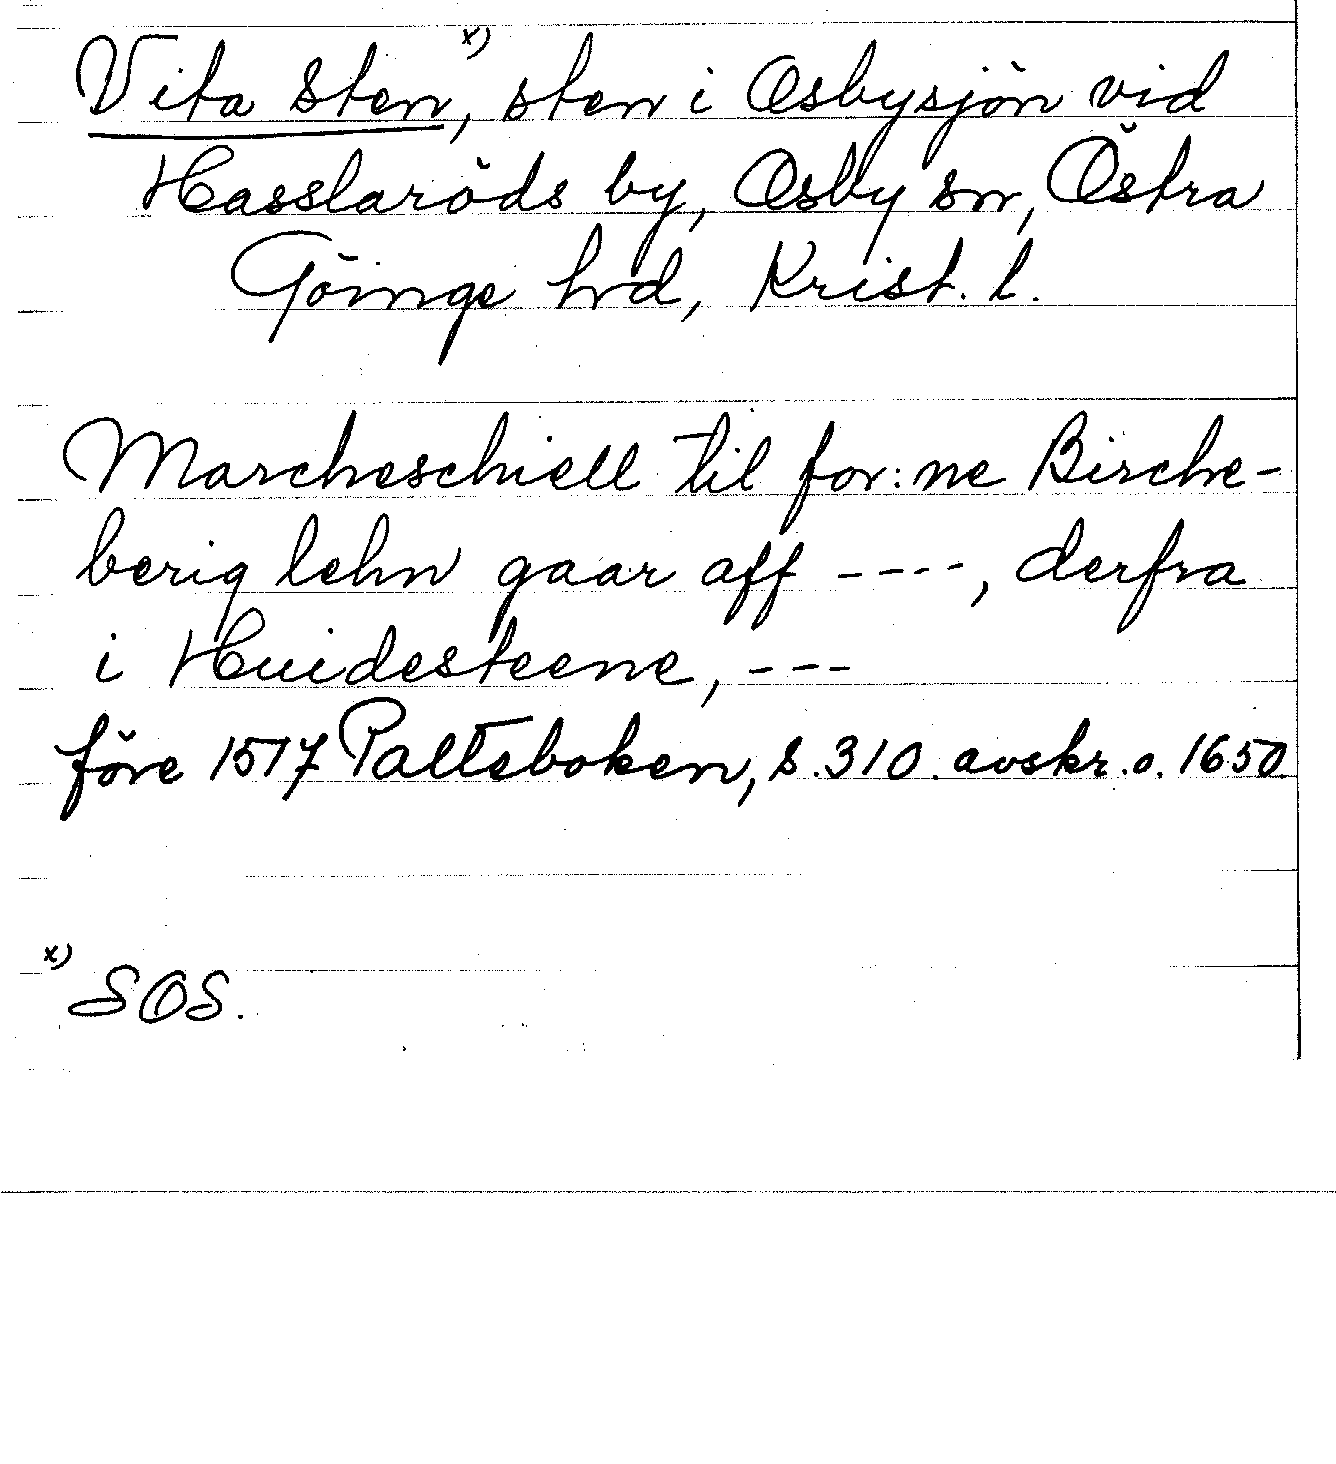 Vita Sten, x) sten i Osbysjön vid
Hasslaröds by, Osby sn, Östra
Göinge hd, Krist. l.
Marcheschiell til for:ne Birche-
berig lehn gaar aff ----, derfra
i Huidesteene, ---
före 1517 Palteboken, s. 310. avskr. o. 1650
x) SOS.